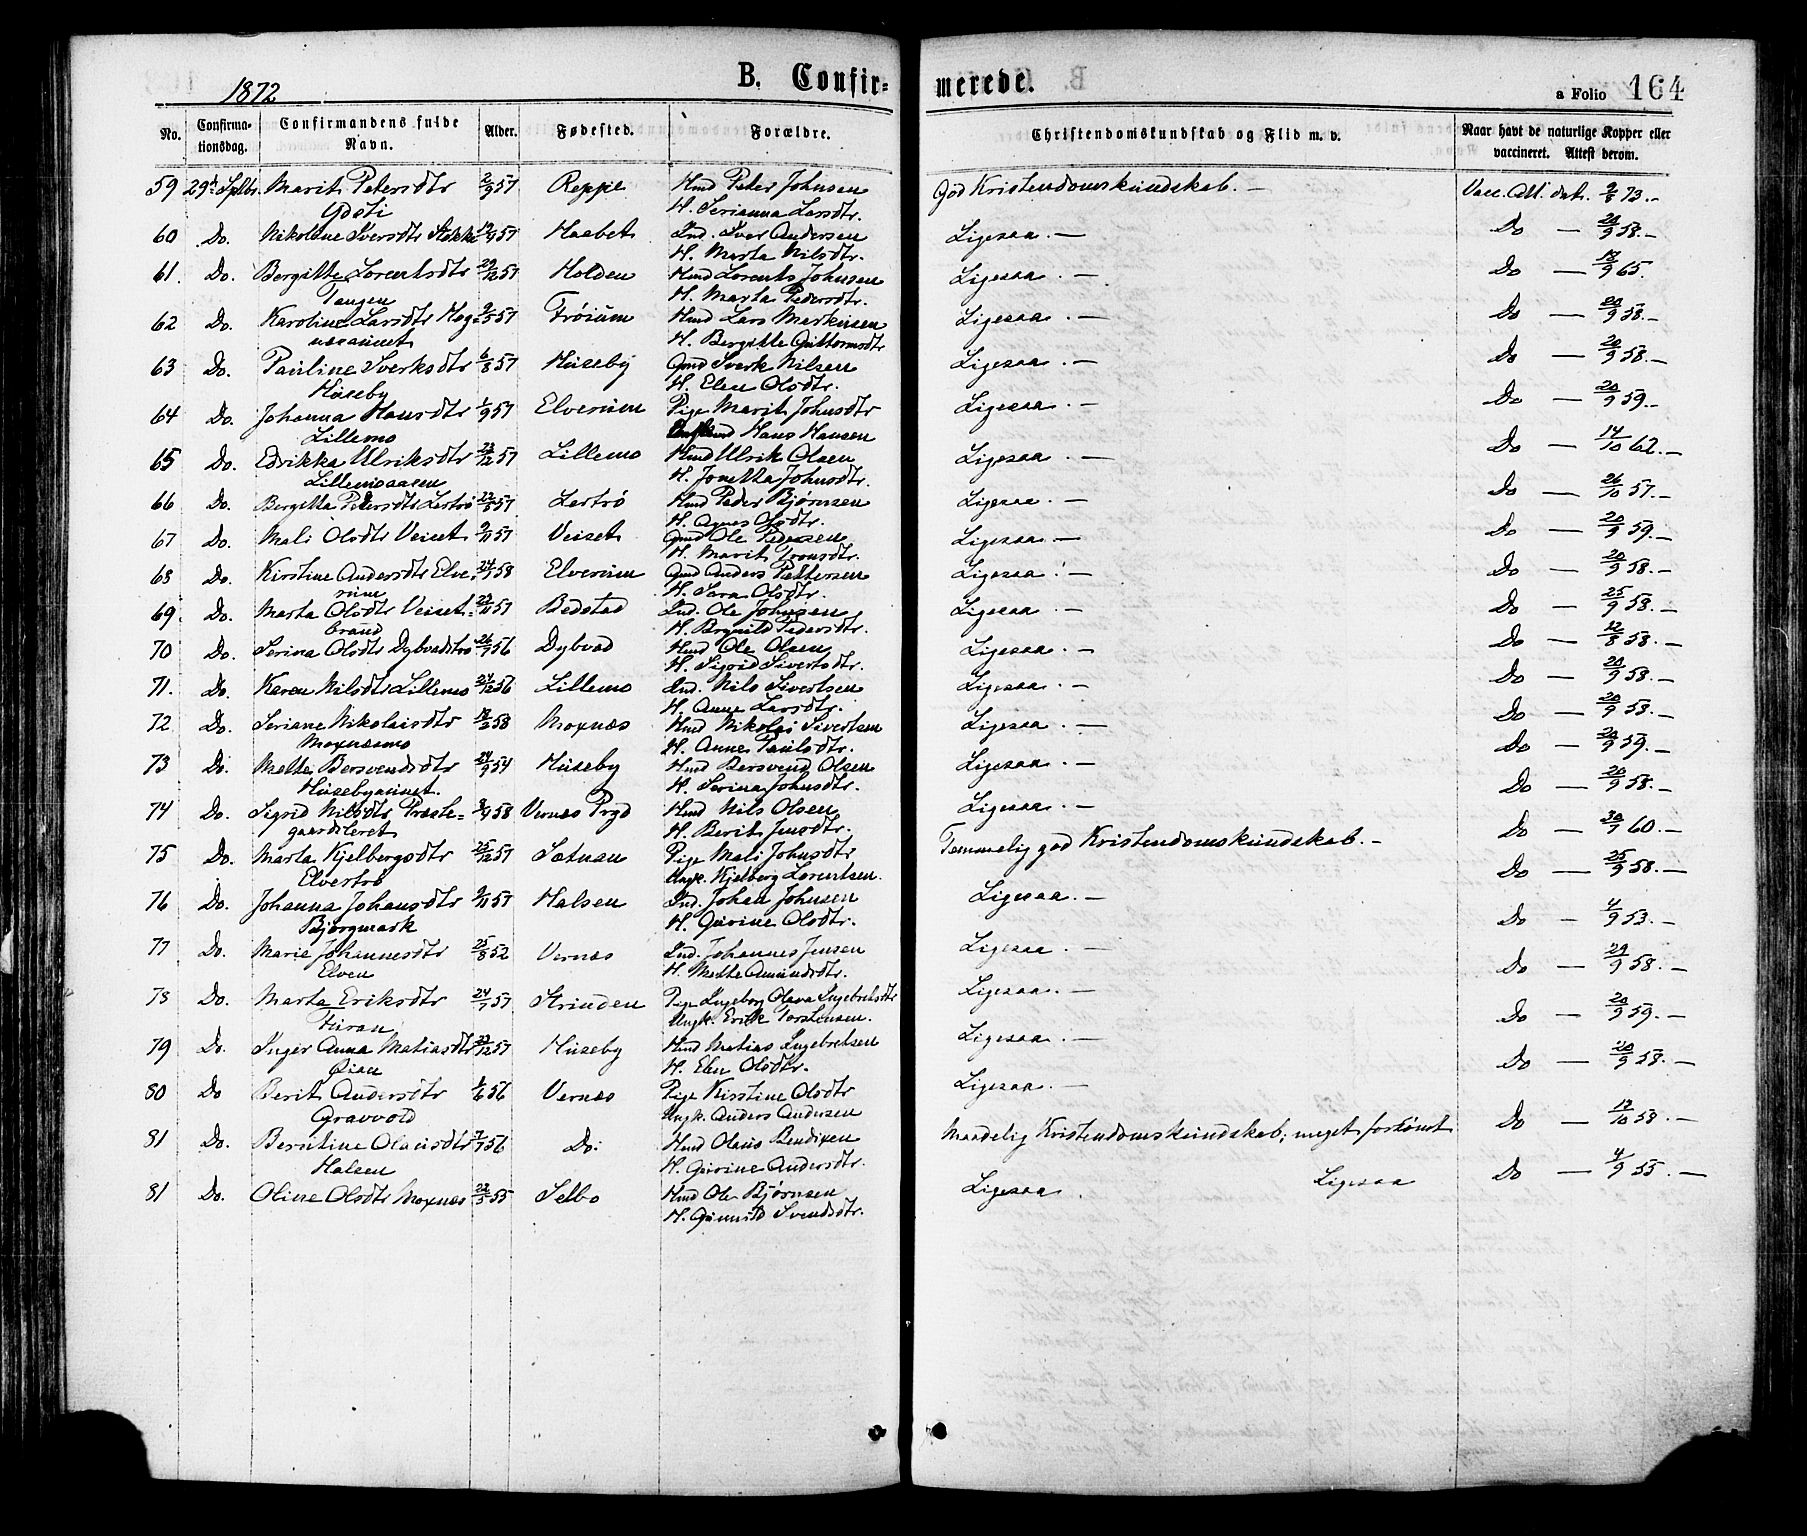 1872
B. Confir-
merede.
a Folio 164
No. Confirma-tionsdag. Confirmandens fulde Navn. Alder. Fødested. Forældre. Christendomskundskab og Flid m. v. Naar havt de naturlige Kopper eller vaccineret. Attest derom.
59 29d Sptbr. Marit Petersdtr 2/9 57 Reppe Hmd Peter Johnsen God Kristendomskundskab. — Vacc. Att. dat. 2/8 73. —
Ydsti H. Serianna Larsdtr.
60 Do. Nikoline Iversdtr Stokke 57 Haabet Ind. Iver Andersen Ligesaa. — Do — 20/9 58. —
H. Marta Nilsdtr.
61. Do. Bergitte Lorentsdtr 29/12 57 Holden Hmd Lorents Johnsen Ligesaa. — Do — 17/9 65.
Tangen H. Marta Pedersdtr.
62 Do. Karoline Larsdtr Mog- 9/5 57 Frøium Hmd Lars Markusen Ligesaa. — Do — 20/9 58. —
næsaunet H. Bergitte Guttormsdtr
63 Do. Pauline Sverksdtr 6/8 57 Huseby Gmd Sverk Nilsen Ligesaa. — Do — 20/9 58. —
Huseby H. Elen Olsdtr.
64 Do. Johanna Hansdtr 1/9 57 Elverum Pige Marit Johnsdtr Ligesaa. — Do — 20/9 59. —
Lillemo Hans Hansen
65 Do. Edrikka Ulriksdtr 23/12 57 Lillemo Hmd Ulrik Olsen Ligesaa. — Do — 14/10 62. —
Lillemoaasen H. Jonetta Johnsdtr.
66 Do. Bergitta Pedersdtr Lertrö 22/8 57 Lertrö Hmd Peder Bjørnsen Ligesaa. — Do — 26/10 57. —
H. Agnes Olsdtr.
67 Do. Mali Olsdtr Veiset 9/11 57 Veiset Gmd Ole Pedersen Ligesaa — Do — 20/9 59. —
H. Marit Tronsdtr.
68 Do. Kirstine Andersdtr Elve- 24/1 58 Elverum Gmd Anders Pettersen Ligesaa. — Do — 20/9 58. —
rum H. Sara Olsdtr.
69. Do. Marta Olsdtr Veiset- 23/11 57 Bedstad Ind. Ole Johnsen Ligesaa. — Do — 25/9 58. —
braud H. Brynild Pedersdtr.
70 Do. Serina Olsdtr Dybvadstrø 26/7 56 Dybvad Hmd Ole Olsen Ligesaa. — Do — 12/8 58. —
H. Sigrid Sivertsdtr.
71. Do. Karen Nilsdtr Lillemo 24/12 56 Lillemo Ind. Nils Sivertsen Ligesaa. — Do — 20/9 58. —
H. Anne Larsdtr.
72 Do. Seriane Nikolaisdtr 58 Moxnæs Hmd Nikolai Sivertsen Ligesaa. — Do — 20/9 58. —
Moxnæsmo H. Anne Paulsdtr.
73 Do. Mette Bersvendsdtr 24/9 54 Huseby Hmd Bersvend Olsen Ligesaa. — Do — 20/9 59. —
Husebyaunet. H. Serina Johnsdtr.
74 Do. Sigrid Nilsdtr Præste- 58 Vernæs Prgd Hmd Nils Olsen Ligesaa. — Do — 20/9 58. —
gaardsleret H. Berit Jensdtr.
75 Do. Marta Kjelbergsdtr 25/12 57 Sætnan Pige Mali Johnsdtr Temmelig god Kristendomskundskab. — Do — 30/7 60. —
Elvertrø Ungk. Kjelberg Lorentsen.
76 Do. Johanna Johansdtr 9/11 57 Halsen Ind. Johan Johnsen Ligesaa. — Do — 25/9 58. —
Bjørgmark H. Gurine Olsdtr.
77 Do. Marie Johannesdtr 25/8 52 Vernæs Ind. Johannes Jensen Ligesaa. — Do — 4/9 53. —
Elven H. Mette Amundsdtr.
78 Do. Marta Eriksdtr 24/7 57 Strinden Pige Ingeborg Olava Ingebretsdtr Ligesaa. — Do — 29/9 58. —
Furan Ungk. Erik Torstensen.
79 Do. Inger Anna Matiasdtr 23/12 57 Huseby Hmd Matias Ingebretsen Ligesaa. — Do — 20/9 59. —
Øian H. Elen Olsdtr.
80 Do Berit Andersdtr 1/6 56 Vernæs Pige Kirstine Olsdtr Ligesaa. — Do — 20/9 58. —
Gravvold Ungk. Anders Andersen
81 Do. Berntine Olausdtr 7/7 56 Do. Hmd Olaus Bendixen Maadelig Kristendomskundskab; meget forsømt Do — 17/10 58. —
Halsen H. Gurine Andersdtr.
81 Do. Oline Olsdtr Moxnæs 22/5 55 Selbo Hmd Ole Bjørnsen Ligesaa. Ligesaa Do — 4/9 55. —
H. Gunnild Svendsdtr.